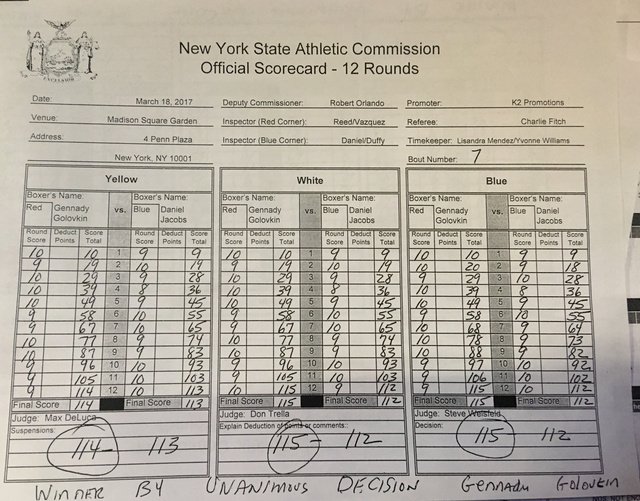 EXCELSIOR
New York State Athletic Commission
Official Scorecard - 12 Rounds
Date: March 18, 2017 Deputy Commissioner: Robert Orlando Promoter: K2 Promotions
Venue: Madison Square Garden Inspector (Red Corner): Reed/Vazquez Referee: Charlie Fitch
Address: 4 Penn Plaza Inspector (Blue Corner): Daniel/Duffy Timekeeper: Lisandra Mendez/Yvonne Williams
New York, NY 10001 Bout Number: 7
Yellow White Blue
Boxer's Name: Boxer's Name: Boxer's Name: Boxer's Name: Boxer's Name: Boxer's Name:
Red Gennady Golovkin vs. Blue Daniel Jacobs Red Gennady Golovkin vs. Blue Daniel Jacobs Red Gennady Golovkin vs. Blue Daniel Jacobs
Round Score Deduct Points Score Total Round Score Deduct Points Score Total Round Score Deduct Points Score Total Round Score Deduct Points Score Total Round Score Deduct Points Score Total Round Score Deduct Points Score Total
10 10 1 9 9 10 10 1 9 9 10 10 1 9 9
9 19 2 10 19 9 19 2 10 19 10 20 2 9 18
10 29 3 9 28 10 29 3 9 28 9 29 3 10 28
10 39 4 8 36 10 39 4 8 36 10 39 4 8 36
10 49 5 9 45 10 49 5 9 45 10 49 5 9 45
9 58 6 10 55 9 58 6 10 55 9 58 6 10 55
9 67 7 10 65 9 67 7 10 65 10 68 7 9 64
10 77 8 9 74 10 77 8 9 74 10 78 8 9 73
10 87 9 9 83 10 87 9 9 83 10 88 9 9 82
9 96 10 10 93 9 96 10 10 93 9 97 10 10 92
9 105 11 10 103 9 105 11 10 103 9 106 11 10 102
9 114 12 10 113 10 115 12 9 112 9 115 12 10 112
Final Score 114 Final Score 113 Final Score 115 Final Score 112 Final Score 115 Final Score 112
Judge: Max DeLuca Judge: Don Trella Judge: Steve Weisfeld
Suspensions: Explain Deduction of points or comments: Decision:
114 - 113 115 - 112 115 - 112
WINNER BY UNANIMOUS DECISION GENNADY GOLOVKIN